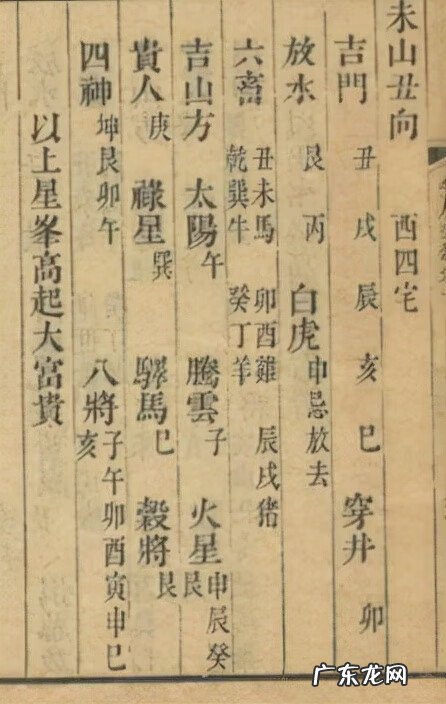 未山丑向 西四宅
吉門 丑戌辰亥巳 穿井 卯
放水 艮丙 白虎 申忌放去
六畜 丑未馬 卯酉雞 辰戌猪 乾巽牛 癸丁羊
吉山方 太陽午 騰雲子 火星 申辰癸艮
貴人庚 祿星巽 驛馬巳 穀將艮
四神 坤艮卯午 八將 子午卯酉寅申巳亥
以上星峯高起大富貴
广东龙网